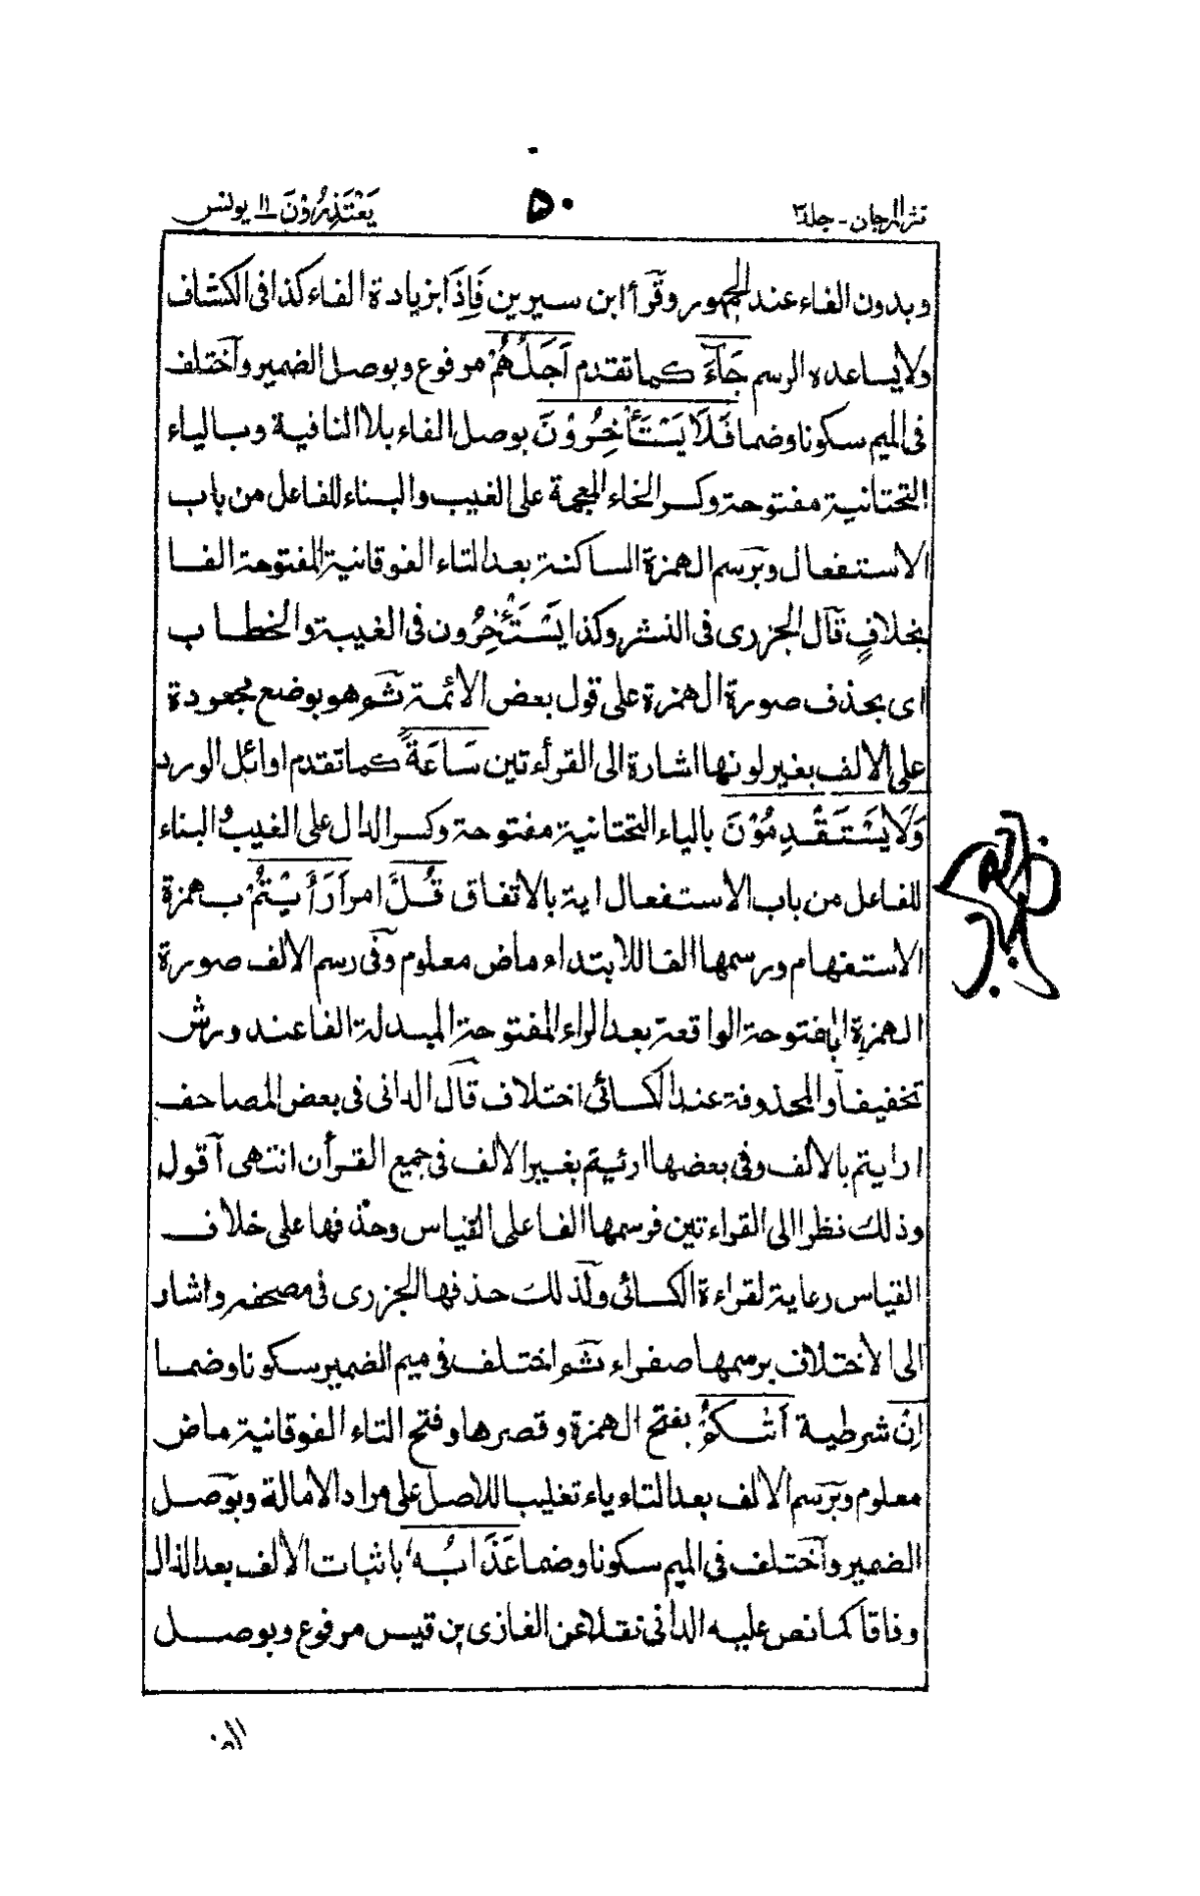 نثر المرجان - جلد٣
٥٠
يَعْتَذِرُوْنَ ١١ يونس
وبدون الفاء عند الجمهور وقرأ ابن سيرين فَاِذَا بزيادة الفاء كذا فى الكشاف
ولا يساعده الرسم جَآءَ كما تقدم اَجَلُهُمْ مرفوع وبوصل الضمير واختلف
فى الميم سكونا وضما فَلَا يَسْتَأْخِرُوْنَ بوصل الفاء بلا النافية وبالياء
التحتانية مفتوحة وكسر الخاء المعجمة على الغيب والبناء للفاعل من باب
الاستفعال وبرسم الهمزة الساكنة بعد التاء الفوقانية المفتوحة الفا
بخلافٍ قال الجزرى فى النشر وكذا يَسْتَئْخِرُون فى الغيبة والخطاب
اى بحذف صورة الهمزة على قول بعض الائمة ثم هو بوضع مجعودة
على الالف بغير لونها اشارة الى القرأءتين سَاعَةً كما تقدم اوائل الورد
وَلَا يَسْتَقْدِمُوْنَ بالياء التحتانية مفتوحة وكسر الدال على الغيب والبناء
للفاعل من باب الاستفعال اية بالاتفاق قُلْ امر اَرَاَيْتُمْ بهمزة
الاستفهام وبرسمها الفا للابتداء ماض معلوم وفى رسم الالف صورة
الهمزة المفتوحة الواقعة بعد الراء المفتوحة المبدلة الفا عند ورش
تخفيفا والمحذوفة عند الكسائى اختلاف قال الدانى فى بعض المصاحف
ارايتم بالالف وفى بعضها اريتم بغير الالف فى جميع القرأن انتهى اقول
وذلك نظرا الى القراءتين فرسمها الفا على القياس وحذفها على خلاف
القياس رعاية لقراءة الكسائى ولذلك حذفها الجزرى فى مصحفه واشار
الى الاختلاف برسمها صفراء ثم اختلف فى ميم الضمير سكونا وضما
اِنْ شرطية اَتٰىكُمْ بفتح الهمزة وقصرها وفتح التاء الفوقانية ماض
معلوم وبرسم الالف بعد التاء ياء تغليبا للاصل على مراد الامالة وبوصل
الضمير واختلف فى الميم سكونا وضما عَذَابُهٗ باثبات الالف بعد الذال
وفاقا كما نص عليه الدانى نقلا عن الغازى بن قيس مرفوع وبوصل